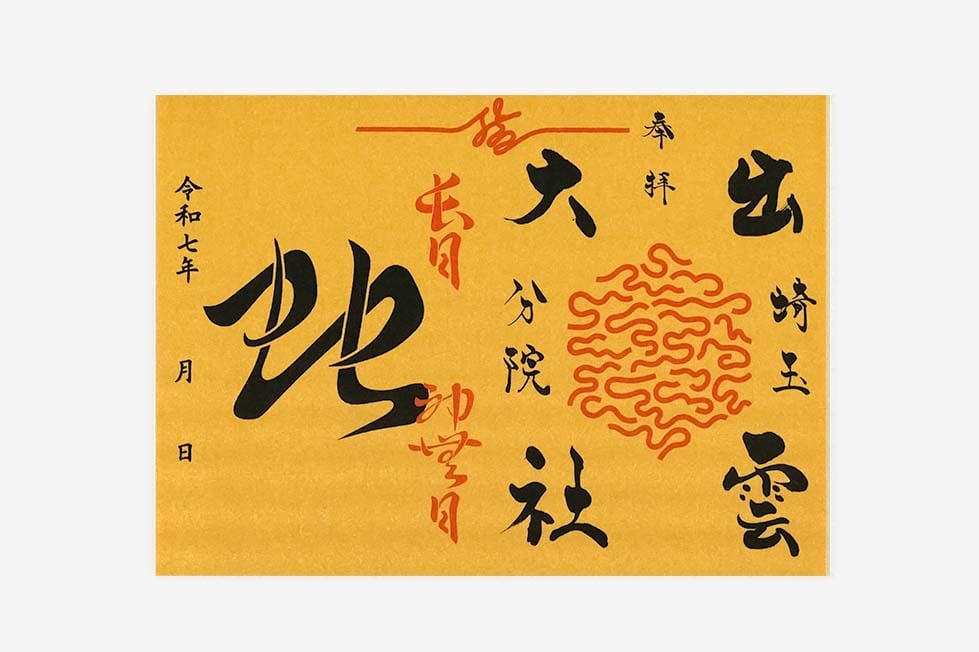 奉拝
出雲
埼玉
大社
分院
結
長月
神無月
令和七年 月 日